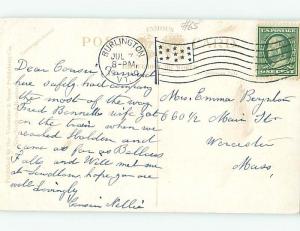 #65
POST CARD
BURLINGTON
JUL
8-PM
VT.
U.S. POSTAGE
Dear Cousin
here safely, had company
the most of the way.
Fred Bennetts wife got
on the train when we
reached Walden and
came as far as Bellows
Falls and Will met me
at . hope you are
well lovingly
Cousin Nellie
Mrs. Emma Boynton
660½ Main St
Worcester
Mass.